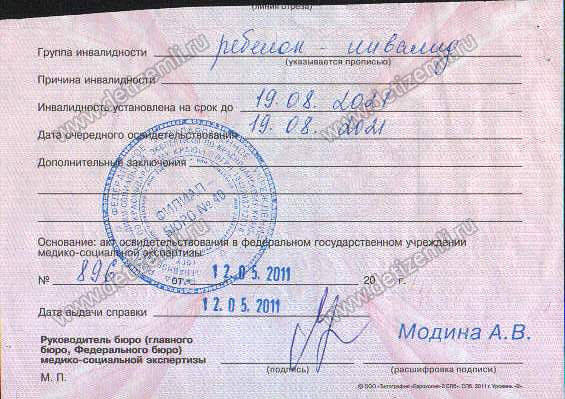 (линия отреза)
Группа инвалидности ребенок - инвалид
(указывается прописью)
Причина инвалидности
Инвалидность установлена на срок до 19.08.2021
Дата очередного освидетельствования 19.08.2021
Дополнительные заключения
ФИЛИАЛ
БЮРО № 40
Основание: акт освидетельствования в федеральном государственном учреждении
медико-социальной экспертизы
№ 896 от 12.05.2011 20 г.
Дата выдачи справки 12.05.2011
Руководитель бюро (главного
бюро, Федерального бюро)
медико-социальной экспертизы
Модина А.В.
(подпись) (расшифровка подписи)
М. П.
www.detizemli.ru